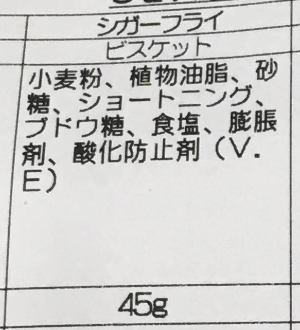 シガーフライ
ビスケット
小麦粉、植物油脂、砂
糖、ショートニング、
ブドウ糖、食塩、膨脹
剤、酸化防止剤（V．
E）
45g